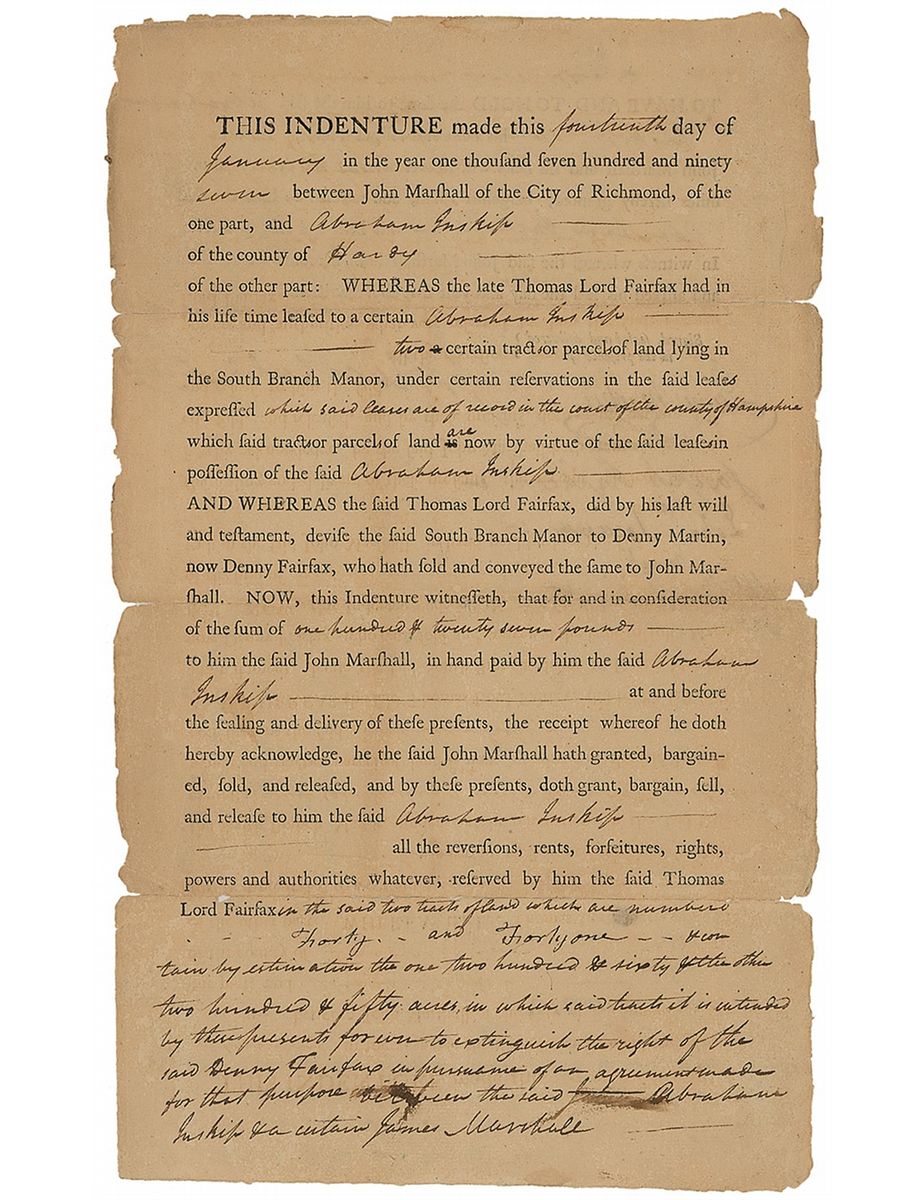 THIS INDENTURE made this fourteenth day of
January in the year one thouſand ſeven hundred and ninety
seven between John Marſhall of the City of Richmond, of the
one part, and Abraham Inskip
of the county of Hardy
of the other part: WHEREAS the late Thomas Lord Fairfax had in
his life time leaſed to a certain Abraham Inskip
two a certain tracts or parcels of land lying in
the South Branch Manor, under certain reſervations in the ſaid leaſes
expreſſed which said leases are of record in the court of the county of Hampshire
which ſaid tracts or parcels of land is are now by virtue of the ſaid leaſes in
poſſeſſion of the ſaid Abraham Inskip
AND WHEREAS the ſaid Thomas Lord Fairfax, did by his laſt will
and teſtament, deviſe the ſaid South Branch Manor to Denny Martin,
now Denny Fairfax, who hath ſold and conveyed the ſame to John Mar-
ſhall. NOW, this Indenture witneſſeth, that for and in conſideration
of the ſum of one hundred & twenty seven pounds
to him the ſaid John Marſhall, in hand paid by him the ſaid Abraham
Inskip at and before
the ſealing and delivery of theſe preſents, the receipt whereof he doth
hereby acknowledge, he the ſaid John Marſhall hath granted, bargain-
ed, ſold, and releaſed, and by theſe preſents, doth grant, bargain, ſell,
and releaſe to him the ſaid Abraham Inskip
all the reverſions, rents, forfeitures, rights,
powers and authorities whatever, reſerved by him the ſaid Thomas
Lord Fairfax in the said two tracts of land which are numberd
Forty and Forty one & con
tain by estimation the one two hundred & sixty & the other
two hundred & fifty acres, in which said tracts it is intended
by these presents forever to extinguish the right of the
said Denny Fairfax in pursuance of an agreement made
for that purpose between the said Abraham
Inskip & a certain James Marshall